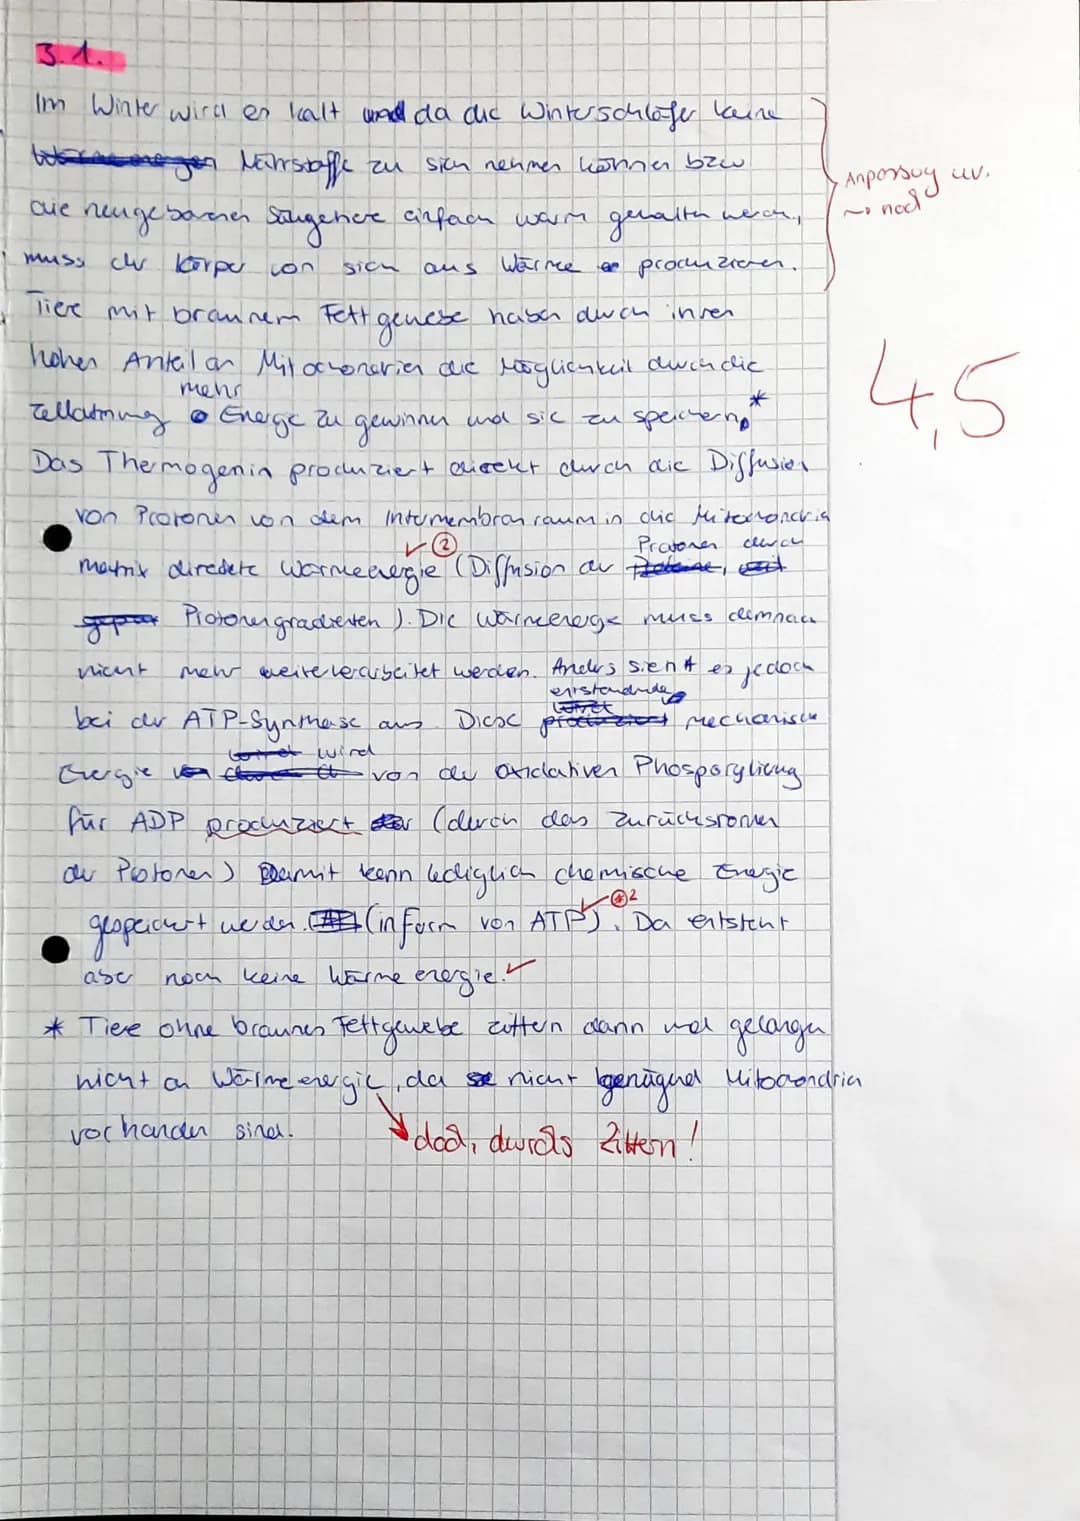 3.1.
Im Winter wird es kalt und da die Winterschläfer keine
Nährstoffe zu sich nehmen können bzw
die neugeborenen Säugetiere einfach warm gehalten werden,
muss der Körper von sich aus Wärme produzieren.
Anpassung uv.
→ nod
Tiere mit braunem Fettgewebe haben durch ihren
hohen Anteil an Mitochondrien die Möglichkeit durch die
mehr
Zellatmung Energie zu gewinnen und sie zu speichern.*
4,5
Das Thermogenin produziert direkt durch die Diffusion
von Protonen von dem Intermembranraum in die Mitochondria
✓②
Protonen durch
matrix direkte Wärmeenergie (Diffusion der
Protonengradienten). Die Wärmeenergie muss demnach
nicht mehr weiterverarbeitet werden. Anders sieht es jedoch
entstandende
bei der ATP-Synthase aus. Diese mechanische
wird
Energie von der oxidativen Phosporylierung
für ADP produziert (durch das zurückströmen
der Protonen) Damit kann lediglich chemische Energie
gespeichert werden (in Form von ATP). Da entsteht
aber noch keine Wärmeenergie. ✓
* Tiere ohne braunes Fettgewebe zittern dann und gelangen
nicht an Wärmeenergie, da nicht genügend Mitocondrien
vorhanden sind.
doch, durchs Zittern!